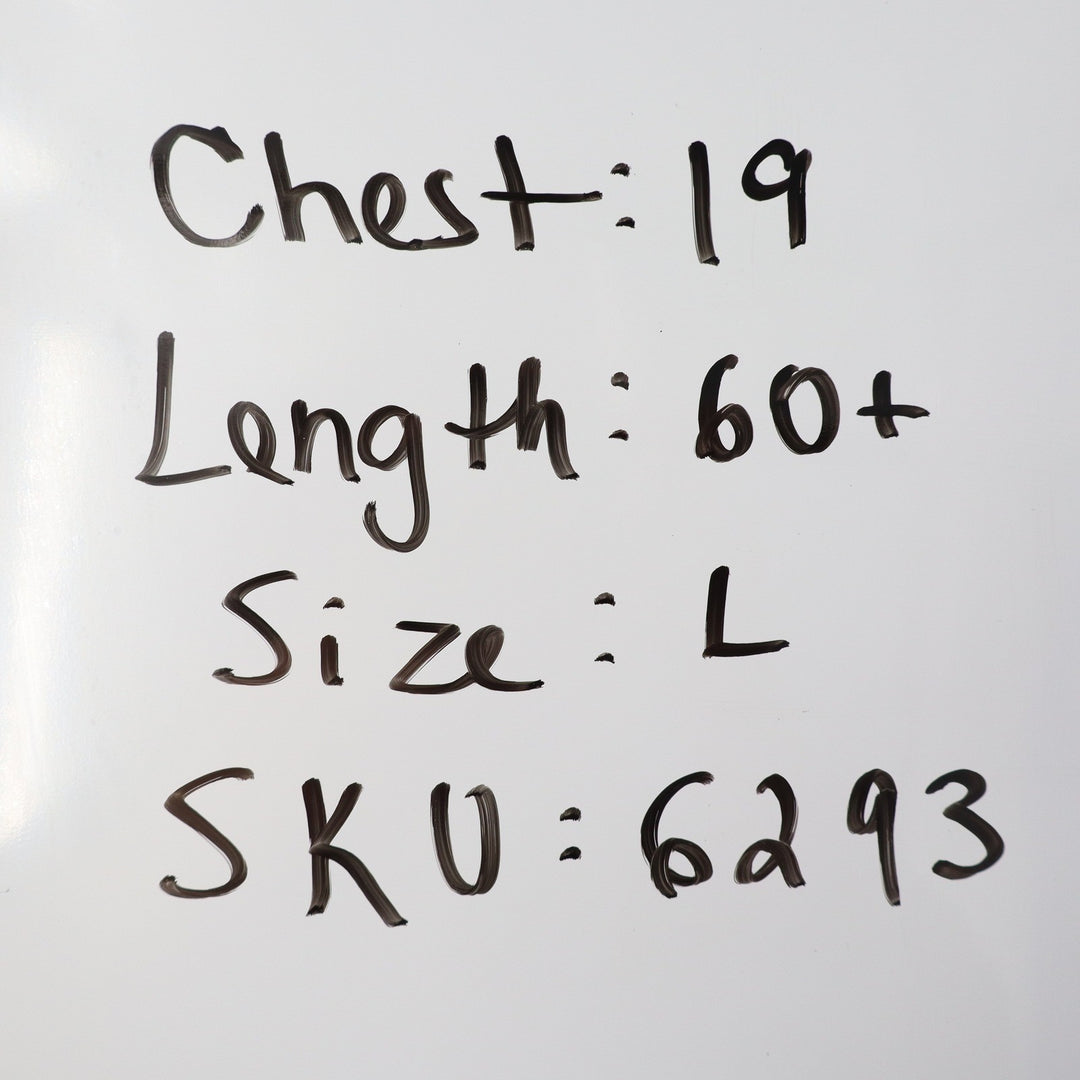 Chest: 19
Length: 60+
Size: L
SKU: 6293